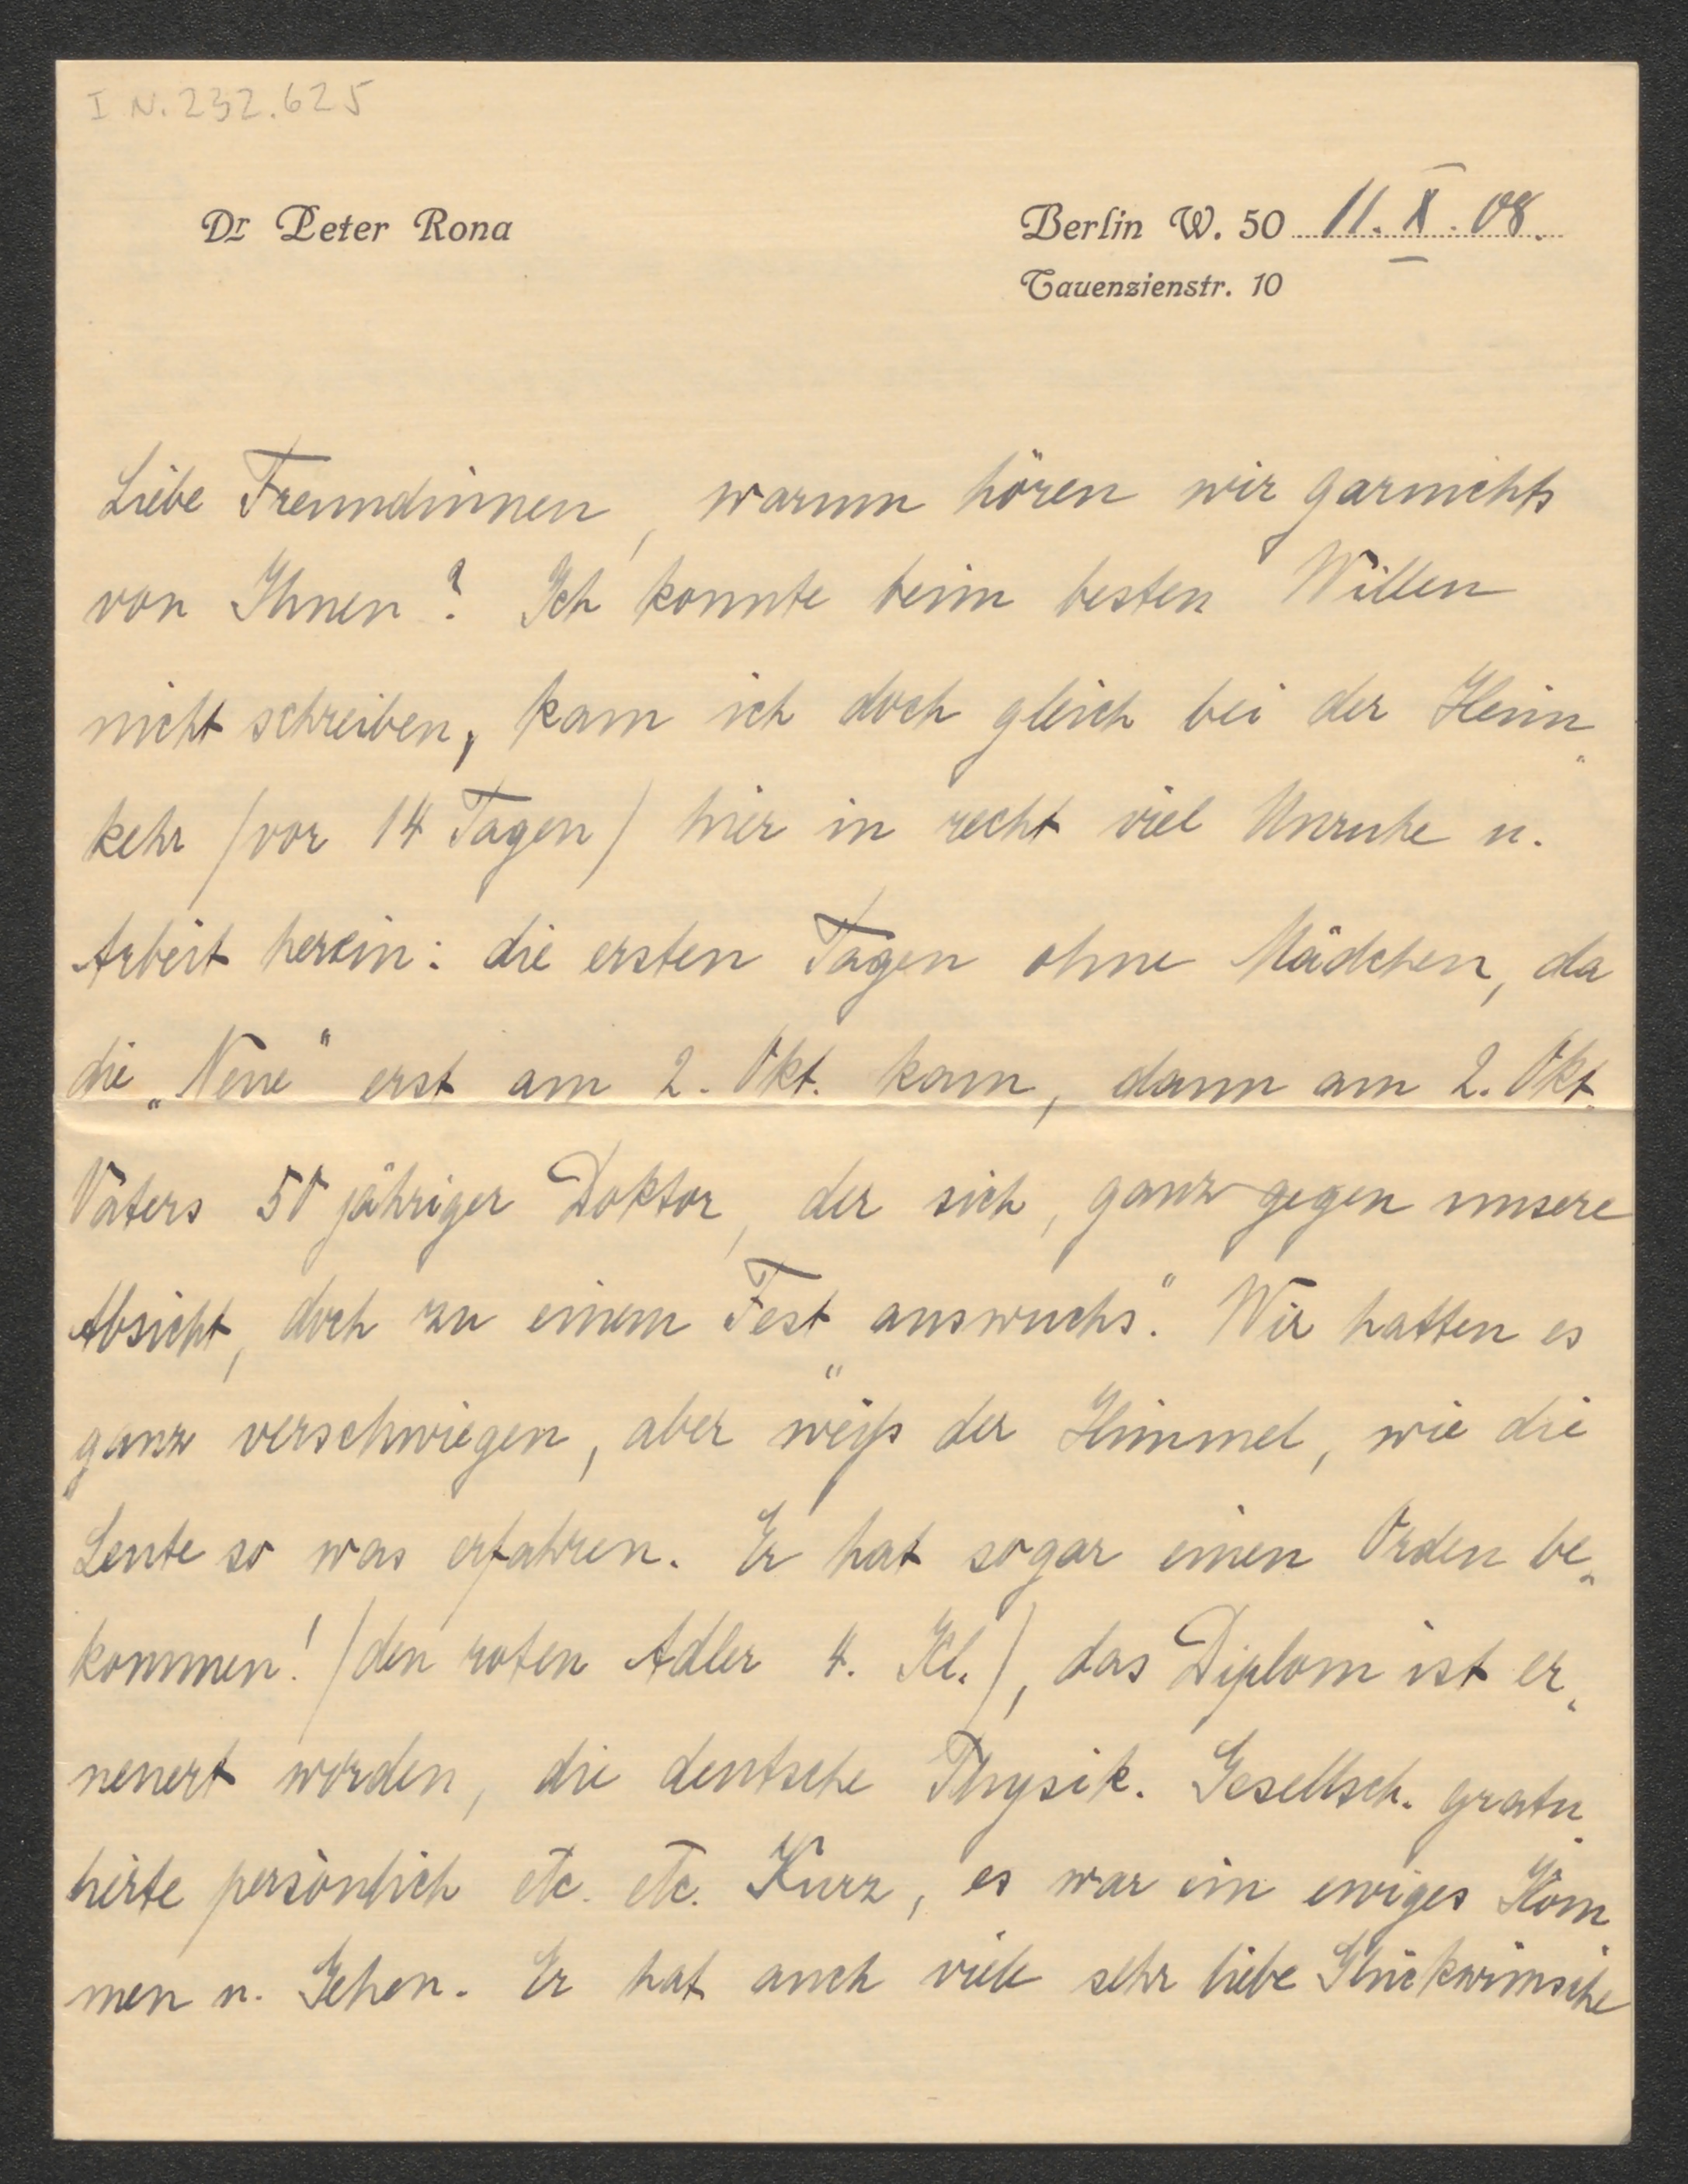 I N. 232.625
Dr Peter Rona
Berlin W. 50 11. X. 08.
Tauenzienstr. 10
Liebe Freundinnen, warum hören wir garnichts
von Ihnen? Ich konnte beim besten Willen
nicht schreiben, kam ich doch gleich bei der Heim„
kehr (vor 14 Tagen) hier in recht viel Unruhe u.
Arbeit herein: die ersten Tagen ohne Mädchen, da
die „Neue" erst am 2. Okt. kam, dann am 2. Okt.
Vaters 50 jähriger Doktor, der sich, ganz gegen unsere
Absicht, doch zu einem Fest „auswuchs". Wir hatten es
ganz verschwiegen, aber weiß der Himmel, wie die
Leute so was erfahren. Er hat sogar einen Orden be„
kommen! (den roten Adler 4. Kl.), das Diplom ist er„
neuert worden, die deutsche Physik. Gesellsch. gratu„
lierte persönlich etc. etc. Kurz, es war ein ewiges Kom
men u. Gehen. Er hat auch viele sehr liebe Glückwünsche